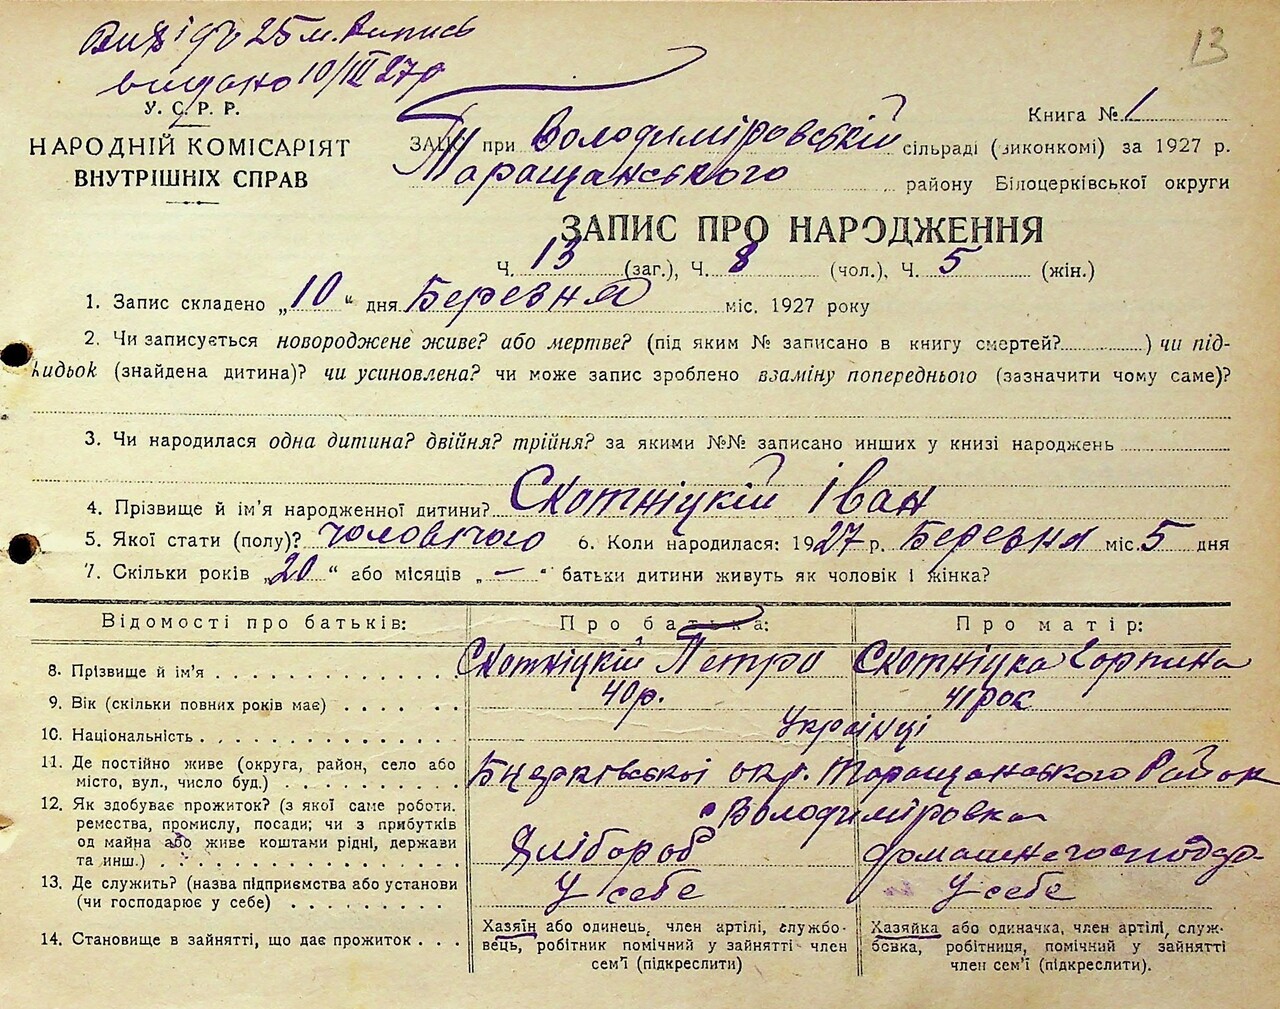 Витяг 25 м. Випись
видано 10/III 27 р
13
У. С. Р. Р.
НАРОДНІЙ КОМІСАРІЯТ
ВНУТРІШНІХ СПРАВ
Книга № 1
ЗАПИС при Володиміровській сільраді (виконкомі) за 1927 р.
Таращанського району Білоцерківської округи
ЗАПИС ПРО НАРОДЖЕННЯ
Ч. 13 (заг.), Ч. 8 (чол.), Ч. 5 (жін.)
1. Запис складено „10“ дня Березня міс. 1927 року
2. Чи записується новороджене живе? або мертве? (під яким № записано в книгу смертей?) чи під-
кидьок (знайдена дитина)? чи усиновлена? чи може запис зроблено взаміну попереднього (зазначити чому саме)?
3. Чи народилася одна дитина? двійня? трійня? за якими №№ записано инших у книзі народжень
4. Прізвище й ім'я народженної дитини? Скотніцкій Іван
5. Якої стати (полу)? чоловічого 6. Коли народилася: 1927 р. Березня міс. 5 дня
7. Скільки років „20“ або місяців „—“ батьки дитини живуть як чоловік і жінка?
Відомості про батьків: Про батька: Про матір:
8. Прізвище й ім'я Скотніцкій Петро Скотніцка Горпина
9. Вік (скільки повних років має) 40 р. 41 рок
10. Національність Українці
11. Де постійно живе (округа, район, село або
місто, вул., число буд.) Бцерківської окр. Таращанського Район
с Володиміровка
12. Як здобуває прожиток? (з якої саме роботи.
ремества, промислу, посади; чи з прибутків
од майна або живе коштами рідні, держави
та инш.) Хлібороб домашнєгосподар-
13. Де служить? (назва підприємства або установи
(чи господарює у себе) У себе У себе
14. Становище в зайнятті, що дає прожиток
Хазяїн або одинець, член артілі, службо-
вець, робітник помічний у зайнятті член
сем'ї (підкреслити)
Хазяйка або одиначка, член артілі, служ-
бовка, робітниця, помічний у зайнятті
член сем'ї (підкреслити).